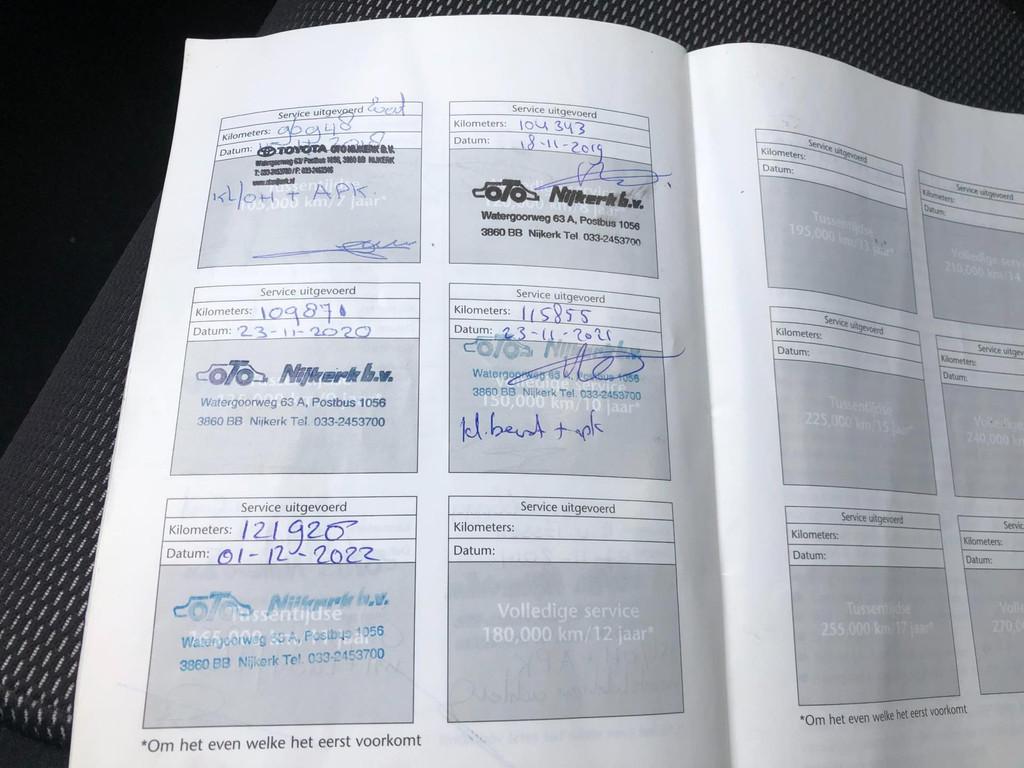 Service uitgevoerd
Kilometers: 96948
Datum:
TOYOTA OTO NIJKERK B.V.
Watergoorweg 63/ Postbus 1056, 3860 BB NIJKERK
KL/OH + APK
105,000 km/7 jaar*
Service uitgevoerd
Kilometers: 104343
Datum: 18-11-2019
OTO Nijkerk b.v.
Watergoorweg 63 A, Postbus 1056
3860 BB Nijkerk Tel. 033-2453700
Service uitgevoerd
Kilometers: 109871
Datum: 23-11-2020
OTO Nijkerk b.v.
Watergoorweg 63 A, Postbus 1056
3860 BB Nijkerk Tel. 033-2453700
Service uitgevoerd
Kilometers: 115855
Datum: 23-11-2021
OTO Nijkerk b.v.
Watergoorweg 63 Postbus 1056
Volledige service
3860 BB Nijkerk Tel. 033-2453700
150,000 km/10 jaar*
kl.beurt + apk
Service uitgevoerd
Kilometers: 121920
Datum: 01-12-2022
OTO Nijkerk b.v.
Tussentijdse
Watergoorweg 63 A, Postbus 1056
3860 BB Nijkerk Tel. 033-2453700
Service uitgevoerd
Kilometers:
Datum:
Volledige service
180,000 km/12 jaar*
*Om het even welke het eerst voorkomt
Service uitgevoerd
Kilometers:
Datum:
Tussentijdse
195,000 km/13 jaar*
Service uitgevoerd
Kilometers:
Datum:
Volledige servi
210,000 km/14
Service uitgevoerd
Kilometers:
Datum:
Tussentijdse
225,000 km/15 jaar*
Service uitgevoe
Kilometers:
Datum:
240,000 km
Service uitgevoerd
Kilometers:
Datum:
Tussentijdse
255,000 km/17 jaar*
Servic
Kilometers:
Datum:
Volle
270,0
*Om het even welke het eerst voorkomt